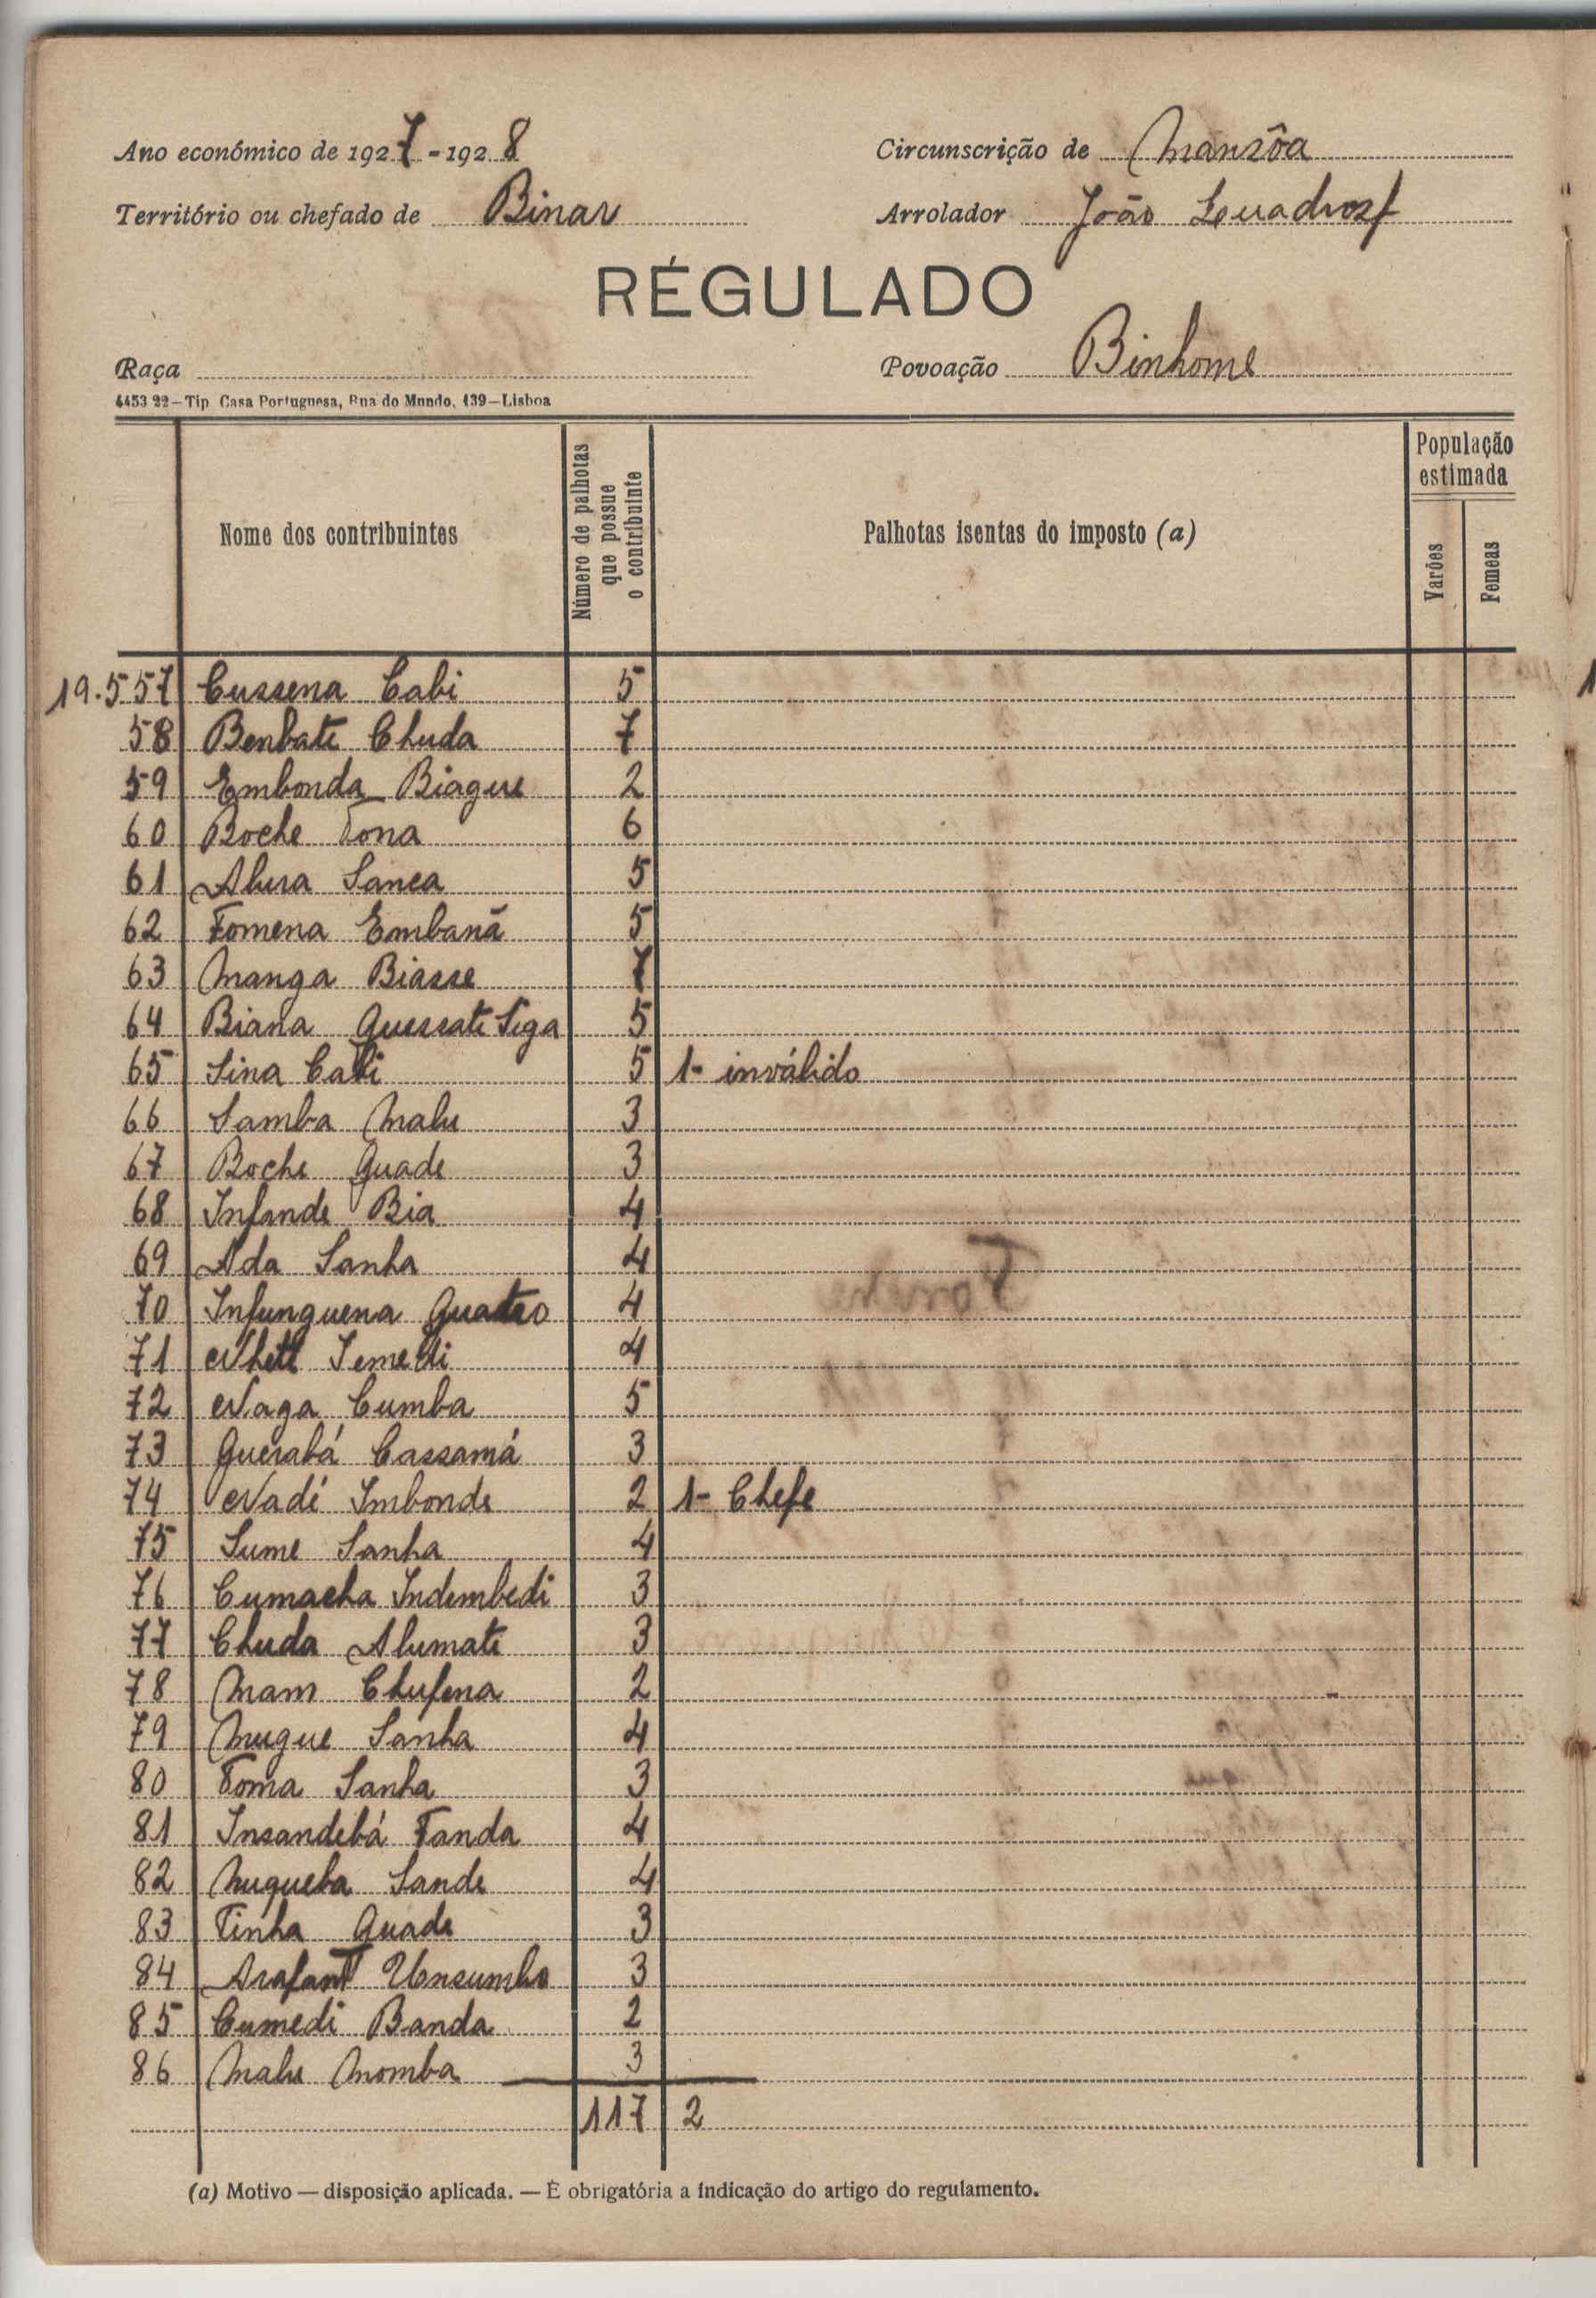 Ano económico de 1927-1928
Circunscrição de Mansôa
Território ou chefado de Binar
Arrolador João
RÉGULADO
Raça
Povoação Binhome
4453 22—Tip. Casa Portuguesa, Rua do Mundo, 139—Lisboa
Nome dos contribuintes
Número de palhotas que possue o contribuinte
Palhotas isentas do imposto (a)
População estimada
Varões
Femeas
19.557 Cussena Cabi 5
58 Benbate Chuda 7
59 Embonda Biague 2
60 Boche Tona 6
61 Alura Sanca 5
62 Fomena Embanã 5
63 Manga Biasse 7
64 Biana Quessate Siga 5
65 Sina Cabi 5 1- inválido
66 Samba Malu 3
67 Boche Quade 3
68 Infande Bia 4
69 Ada Sanha 4
70 Infunguena 4
71 4
72 Naga Cumba 5
73 Querabá Cassamá 3
74 Nadi Imbonde 2 1- Chefe
75 Sume Sanha 4
76 Cumacha Indembedi 3
77 Chuda Alumate 3
78 Mam Chufena 2
79 Mugue Sanha 4
80 Toma Sanha 3
81 Insandebá Fanda 4
82 Nugueba Sande 4
83 Tinha Quade 3
84 3
85 Cumedi Banda 2
86 Malu Momba 3
117 2
(a) Motivo — disposição aplicada. — É obrigatória a indicação do artigo do regulamento.